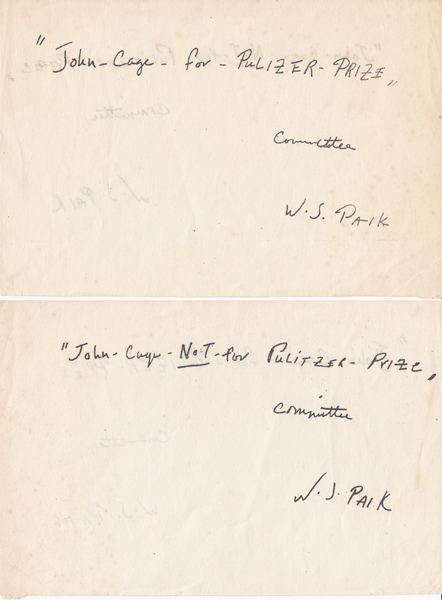 "John-Cage-for-PULIZER-PRIZE"
Committee
W.S. PAIK
"John-Cage-NOT-for PULITZER-PRIZE"
Committee
W.J. PAIK